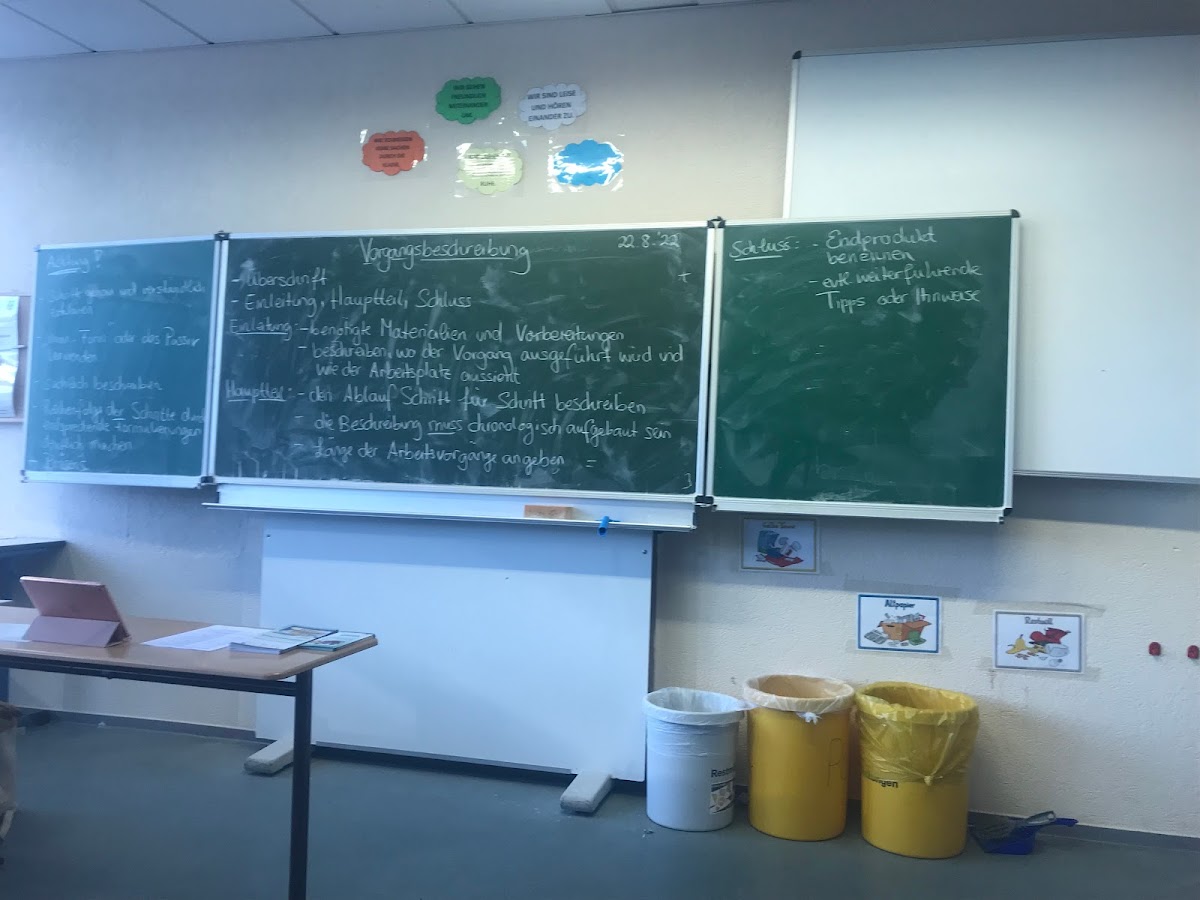 WIR GEHEN
FREUNDLICH
MITEINANDER
UM.
WIR SIND LEISE
UND HÖREN
EINANDER ZU.
RUHE.
Achtung!
- Schritte genau und verständlich
erklären
- man-Form oder das Passiv
verwenden
- sachlich beschreiben
- Reihenfolge der Schritte durch
entsprechende Formulierungen
deutlich machen
- Präsens
Vorgangsbeschreibung
22.8.'22
- Überschrift
- Einleitung, Hauptteil, Schluss
Einleitung: - benötigte Materialien und Vorbereitungen
- beschreiben, wo der Vorgang ausgeführt wird und
wie der Arbeitsplatz aussieht
Hauptteil: - den Ablauf Schritt für Schritt beschreiben
- die Beschreibung muss chronologisch aufgebaut sein
- Länge der Arbeitsvorgänge angeben
Schluss: - Endprodukt
benennen
- evtl. weiterführende
Tipps oder Hinweise
Altpapier
Restmüll